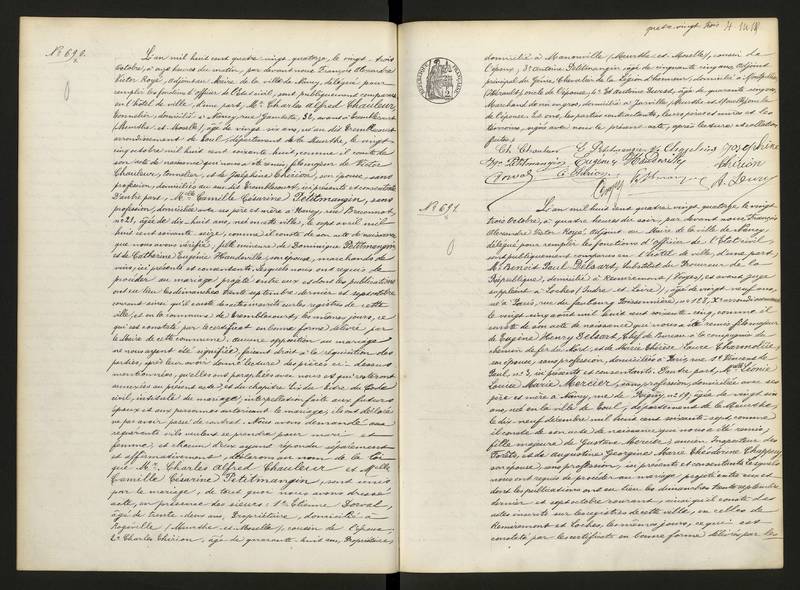 N° 690.
L'an mil huit cent quatre vingt quatorze, le vingt-trois
Octobre, à onze heures du matin, par devant nous François Alexandre
Victor Royé, adjoint au Maire de la ville de Nancy, délégué pour
remplir les fonctions d'officier de l'Etat civil, ont publiquement comparu
en l'hôtel de ville, d'une part, Mr. Charles Alfred Chauleur,
domicilié à Nancy, rue Gambetta, avant à Tremblecourt
(Meurthe-et-Moselle), âgé de vingt six ans, né au dit Tremblecourt
arrondissement de Toul, département de la Meurthe, le vingt
cinq octobre mil huit cent soixante huit, comme il conste de
son acte de naissance qui nous a été remis, fils majeur de Victor
Chauleur, tonnelier, et de Joséphine Thirion, son épouse, sans
profession, domiciliés au sus dit Tremblecourt, ici présents et consentants
D'autre part, Mlle Camille Césarine Petitmangin, sans
profession, domiciliée avec ses père et mère à Nancy, rue
n° 21, âgée de dix huit ans, née en cette ville, le sept avril mil
huit cent soixante seize, comme il conste de son acte de naissance
que nous avons vérifié, fille mineure de Dominique Petitmangin
et de Catherine Eugénie son épouse, marchands de
vins, ici présents et consentants, lesquels nous ont requis de
procéder au mariage projeté entre eux et dont les publications
ont eu lieu les dimanches trente septembre dernier et sept octobre
courant ainsi qu'il conste des actes inscrits sur les registres de cette
ville, et en la commune de Tremblecourt, les mêmes jours, ce
qui est constaté par le certificat en bonne forme délivré par
le Maire de cette commune; aucune opposition au mariage
ne nous ayant été signifiée, faisant droit à la réquisition des
parties, après leur avoir donné lecture des pièces ci-dessus
mentionnées, qu'elles ont paraphées avec nous et qui resteront
annexées au présent acte, et du chapitre VI du titre du Code
civil, intitulé du mariage, interpellation faite aux futurs
époux et aux personnes autorisant le mariage, ils ont déclaré
ne pas avoir passé de contrat. Nous avons demandé aux
requérants s'ils veulent se prendre pour mari et
femme, et chacun d'eux ayant répondu séparément
et affirmativement, déclarons au nom de la loi
que Mr. Charles Alfred Chauleur et Mlle
Camille Césarine Petitmangin, sont unis
par le mariage, de tout quoi nous avons dressé
acte, en présence des sieurs: 1° Etienne Dorval,
âgé de trente deux ans, Propriétaire, domicilié à
Rogéville (Meurthe-et-Moselle), cousin de l'époux
2° Charles Thirion, âgé de quarante-huit ans, Propriétaire,
quatre-vingt trois
domicilié à Manonville (Meurthe-et-Moselle), cousin de
l'époux; 3° Antoine Petitmangin, âgé de cinquante cinq ans, adjoint
principal du Génie, Chevalier de la Légion d'honneur, domicilié à Montpellier
(Hérault), oncle de l'épouse; 4° Antoine âgé de quarante cinq ans,
Marchand de vin en gros, domicilié à Jarville, (Meurthe-et-Moselle)
de l'épouse. Et ont, les parties contractantes, leurs pères et mères et les
témoins, signé avec nous le présent acte, après lecture et collation
faites.
Ch. Chauleur C. Petitmangin V. Chauleur Joséphine
Petitmangin Eugénie Thirion
Dorval Thirion
N° 691.
L'an mil huit cent quatre vingt quatorze, le vingt
trois Octobre, à quatre heures du soir, par devant nous, François
Alexandre Victor Royé, adjoint au Maire de la ville de Nancy,
délégué pour remplir les fonctions d'officier de l'Etat civil,
sont publiquement comparus en l'hôtel de ville, d'une part,
Mr. Benoit Paul Delsart, Substitut du Procureur de la
République, domicilié à Remiremont (Vosges), et avant juge
suppléant à Loches (Indre et Loire), âgé de vingt neuf ans,
né à Paris, rue du faubourg Poissonnière, n° 128, Xe arrondissement
le vingt cinq août mil huit cent soixante-cinq, comme il
conste de son acte de naissance qui nous a été remis, fils majeur
de Eugène Henry Delsart, Chef de Bureau à la compagnie du
chemin de fer du Nord, et de Marie Thérèse Laure
son épouse, sans profession, domiciliés à Paris, rue St Vincent de
Paul, n° 3, ici présents et consentants. D'autre part, Mlle Léonie
Louise Marie Mercier, sans profession, domiciliée avec ses
père et mère à Nancy, rue de n° 19, âgée de vingt sept
ans, née en la ville de Toul, département de la Meurthe,
le dix-neuf décembre mil huit cent soixante-sept, comme
il conste de son acte de naissance qui nous a été remis,
fille majeure de Gustave Mercier, ancien Inspecteur des
Forêts, et de Augustine Georgina Marie Théodorine Chappuy
son épouse, sans profession, ici présents et consentants, lesquels
nous ont requis de procéder au mariage projeté entre eux et
dont les publications ont eu lieu les dimanches trente septembre
dernier et sept octobre courant, ainsi qu'il conste des
actes inscrits sur les registres de cette ville, en celles de
Remiremont et Loches, les mêmes jours, ce qui est
constaté par les certificats en bonne forme délivrés par les